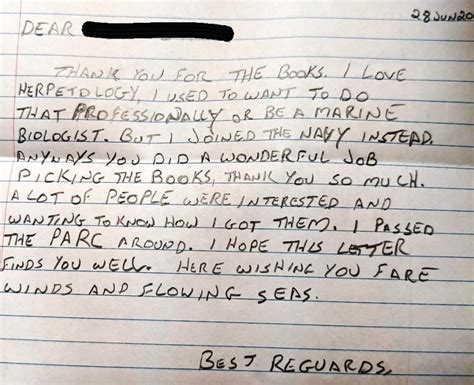 28JUN20
DEAR
THANK YOU FOR THE BOOKS. I LOVE
HERPETOLOGY, I USED TO WANT TO DO
THAT PROFESSIONALLY OR BE A MARINE
BIOLOGIST. BUT I JOINED THE NAVY INSTEAD.
ANYWAYS YOU DID A WONDERFUL JOB
PICKING THE BOOKS, THANK YOU SO MUCH.
A LOT OF PEOPLE WERE INTERESTED AND
WANTING TO KNOW HOW I GOT THEM. I PASSED
THE PARC AROUND. I HOPE THIS LETTER
FINDS YOU WELL. HERE WISHING YOU FARE
WINDS AND FLOWING SEAS.
BEST REGUARDS,